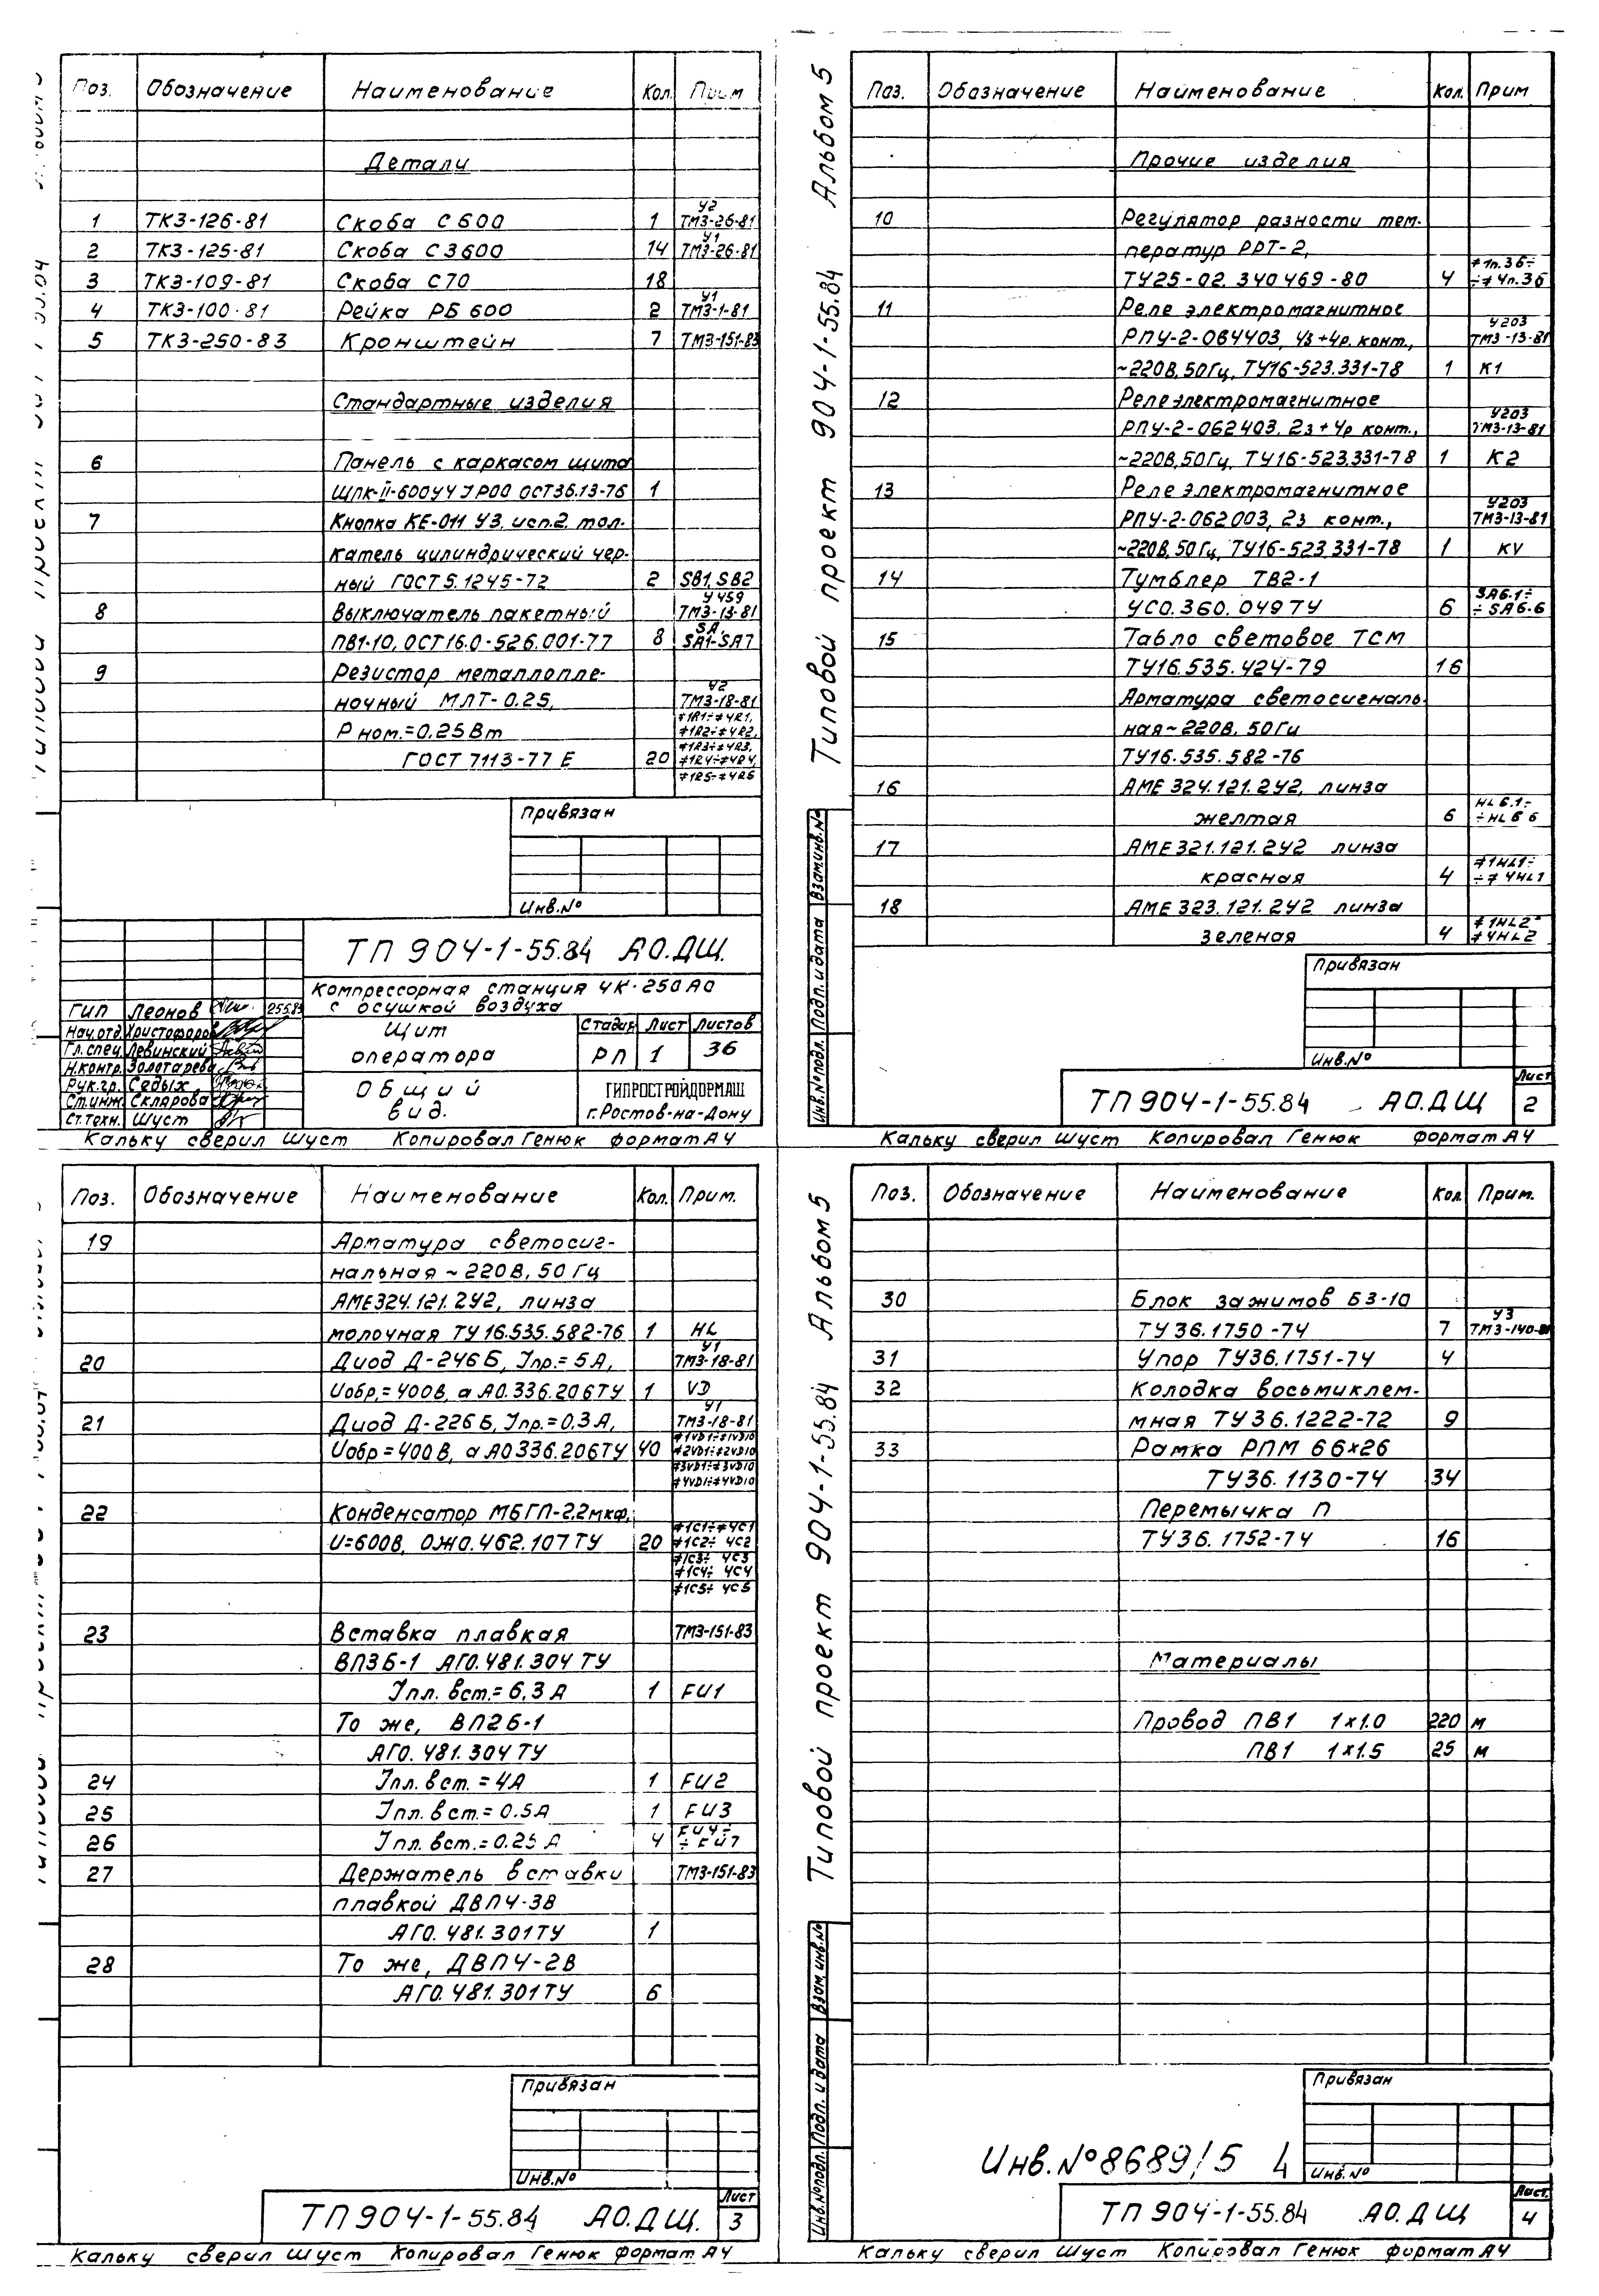 Поз. Обозначение Наименование Кол. Прим
Детали
1 ТК3-126-81 Скоба С600 1 У2 ТМ3-26-81
2 ТК3-125-81 Скоба С3600 14 У1 ТМ3-26-81
3 ТК3-109-81 Скоба С70 18
4 ТК3-100-81 Рейка РБ600 2 У1 ТМ3-1-81
5 ТК3-250-83 Кронштейн 7 ТМ3-151-83
Стандартные изделия
6 Панель с каркасом щита
ЩПК-II-600У4 JP00 ОСТ36.13-76 1
7 Кнопка КЕ-011 У3, исп.2, тол-
катель цилиндрический чер-
ный ГОСТ 5.1245-72 2 SB1, SB2
8 Выключатель пакетный У459 ТМ3-13-81
ПВ1-10, ОСТ16.0-526.001-77 8 SA, SA1-SA7
9 Резистор металлопле-
ночный МЛТ-0.25, У2 ТМ3-18-81
Рном.=0,25Вт ≠1R1÷≠4R1, ≠1R2÷≠4R2,
ГОСТ 7113-77 Е 20 ≠1R3÷≠4R3, ≠1R4÷≠4R4, ≠1R5÷≠4R5
Привязан
Инв.№
ТП 904-1-55.84 АО.ДЩ.
Компрессорная станция 4К-250АО
с осушкой воздуха
ГИП Леонов 25.5.84
Нач.отд. Христофоров
Гл.спец. Левинский
Н.контр. Золотарева
Рук.гр. Седых
Ст.инж. Склярова
Ст.техн. Шуст
Щит
оператора
Стадия Лист Листов
РП 1 36
Общий
вид.
ГИПРОСТРОЙДОРМАШ
г.Ростов-на-Дону
Кальку сверил Шуст Копировал Генюк формат А4
Типовой проект 904-1-55.84 Альбом 5
Поз. Обозначение Наименование Кол. Прим
Прочие изделия
10 Регулятор разности тем-
ператур РРТ-2,
ТУ25-02.340469-80 4 ≠1п.36÷ ÷≠4п.36
11 Реле электромагнитное
РПУ-2-064403, 4з+4р. конт., У203 ТМ3-13-81
~220В, 50Гц, ТУ16-523.331-78 1 К1
12 Реле электромагнитное
РПУ-2-062403, 2з+4р конт., У203 ТМ3-13-81
~220В, 50Гц, ТУ16-523.331-78 1 К2
13 Реле электромагнитное
РПУ-2-062003, 2з конт., У203 ТМ3-13-81
~220В, 50Гц, ТУ16-523.331-78 1 KV
14 Тумблер ТВ2-1
УС0.360.049ТУ 6 SA6.1÷ ÷SA6.6
15 Табло световое ТСМ
ТУ16.535.424-79 16
Арматура светосигналь-
ная ~220В, 50Гц
ТУ16.535.582-76
16 АМЕ 324.121.2У2, линза
желтая 6 HL6.1÷ ÷HL6.6
17 АМЕ 321.121.2У2 линза
красная 4 ≠1HL1÷ ÷≠4HL1
18 АМЕ 323.121.2У2 линза
зеленая 4 ≠1HL2÷ ≠4HL2
Привязан
Инв.№
Инв.№подл. Подп. и дата Взам.инв.№
ТП 904-1-55.84 АО.ДЩ
Лист
2
Кальку сверил Шуст Копировал Генюк формат А4
Поз. Обозначение Наименование Кол. Прим.
19 Арматура светосиг-
нальная ~220В, 50Гц
АМЕ324.121.2У2, линза
молочная ТУ16.535.582-76 1 HL
20 Диод Д-246Б, Jпр.=5А, У1 ТМ3-18-81
Uобр.=400В, аА0.336.206ТУ 1 VD
21 Диод Д-226Б, Jпр.=0,3А, У1 ТМ3-18-81
Uобр=400В, аА0336.206ТУ 40 ≠1VD1÷≠1VD10 ≠2VD1÷≠2VD10
≠3VD1÷≠3VD10 ≠4VD1÷≠4VD10
22 Конденсатор МБГП-2,2мкф,
U=600В, ОЖ0.462.107ТУ 20 ≠1C1÷≠4C1 ≠1C2÷ 4C2
≠1C3÷ 4C3 ≠1C4÷ 4C4 ≠1C5÷ 4C5
23 Вставка плавкая ТМ3-151-83
ВП3Б-1 АГ0.481.304 ТУ
Jпл. вст.=6,3А 1 FU1
То же, ВП2Б-1
АГ0.481.304 ТУ
24 Jпл. вст.=4А 1 FU2
25 Jпл. вст.=0.5А 1 FU3
26 Jпл. вст.=0.25А 4 FU4÷ ÷FU7
27 Держатель вставки ТМ3-151-83
плавкой ДВП4-3В
АГ0.481.301ТУ 1
28 То же, ДВП4-2В
АГ0.481.301ТУ 6
Привязан
Инв.№
ТП 904-1-55.84 АО.ДЩ.
Лист
3
Кальку сверил Шуст Копировал Генюк формат А4
Типовой проект 904-1-55.84 Альбом 5
Поз. Обозначение Наименование Кол. Прим.
30 Блок зажимов БЗ-10
ТУ36.1750-74 7 У3 ТМ3-140-81
31 Упор ТУ36.1751-74 4
32 Колодка восьмиклем-
мная ТУ36.1222-72 9
33 Рамка РПМ 66×26
ТУ36.1130-74 34
Перемычка П
ТУ36.1752-74 16
Материалы
Провод ПВ1 1×1.0 220 м
ПВ1 1×1.5 25 м
Инв.№подл. Подп. и дата Взам.инв.№
Привязан
Инв.№
Инв.№8689/5 4
ТП 904-1-55.84 АО.ДЩ
Лист.
4
Кальку сверил Шуст Копировал Генюк формат А4